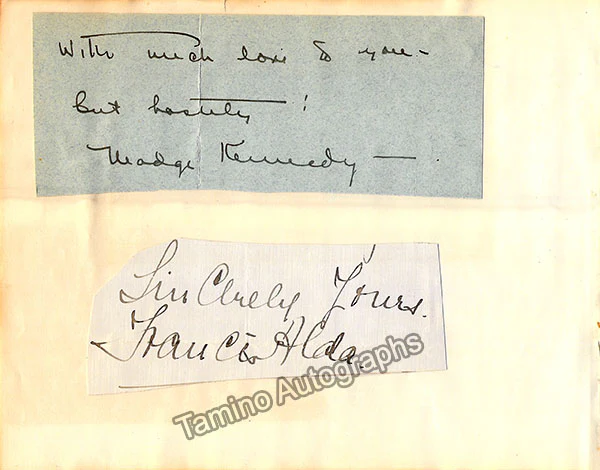 With much love to you –
but hastily !
Madge Kennedy —
Sincerely Yours.
Francis Alda.
Tamino Autographs